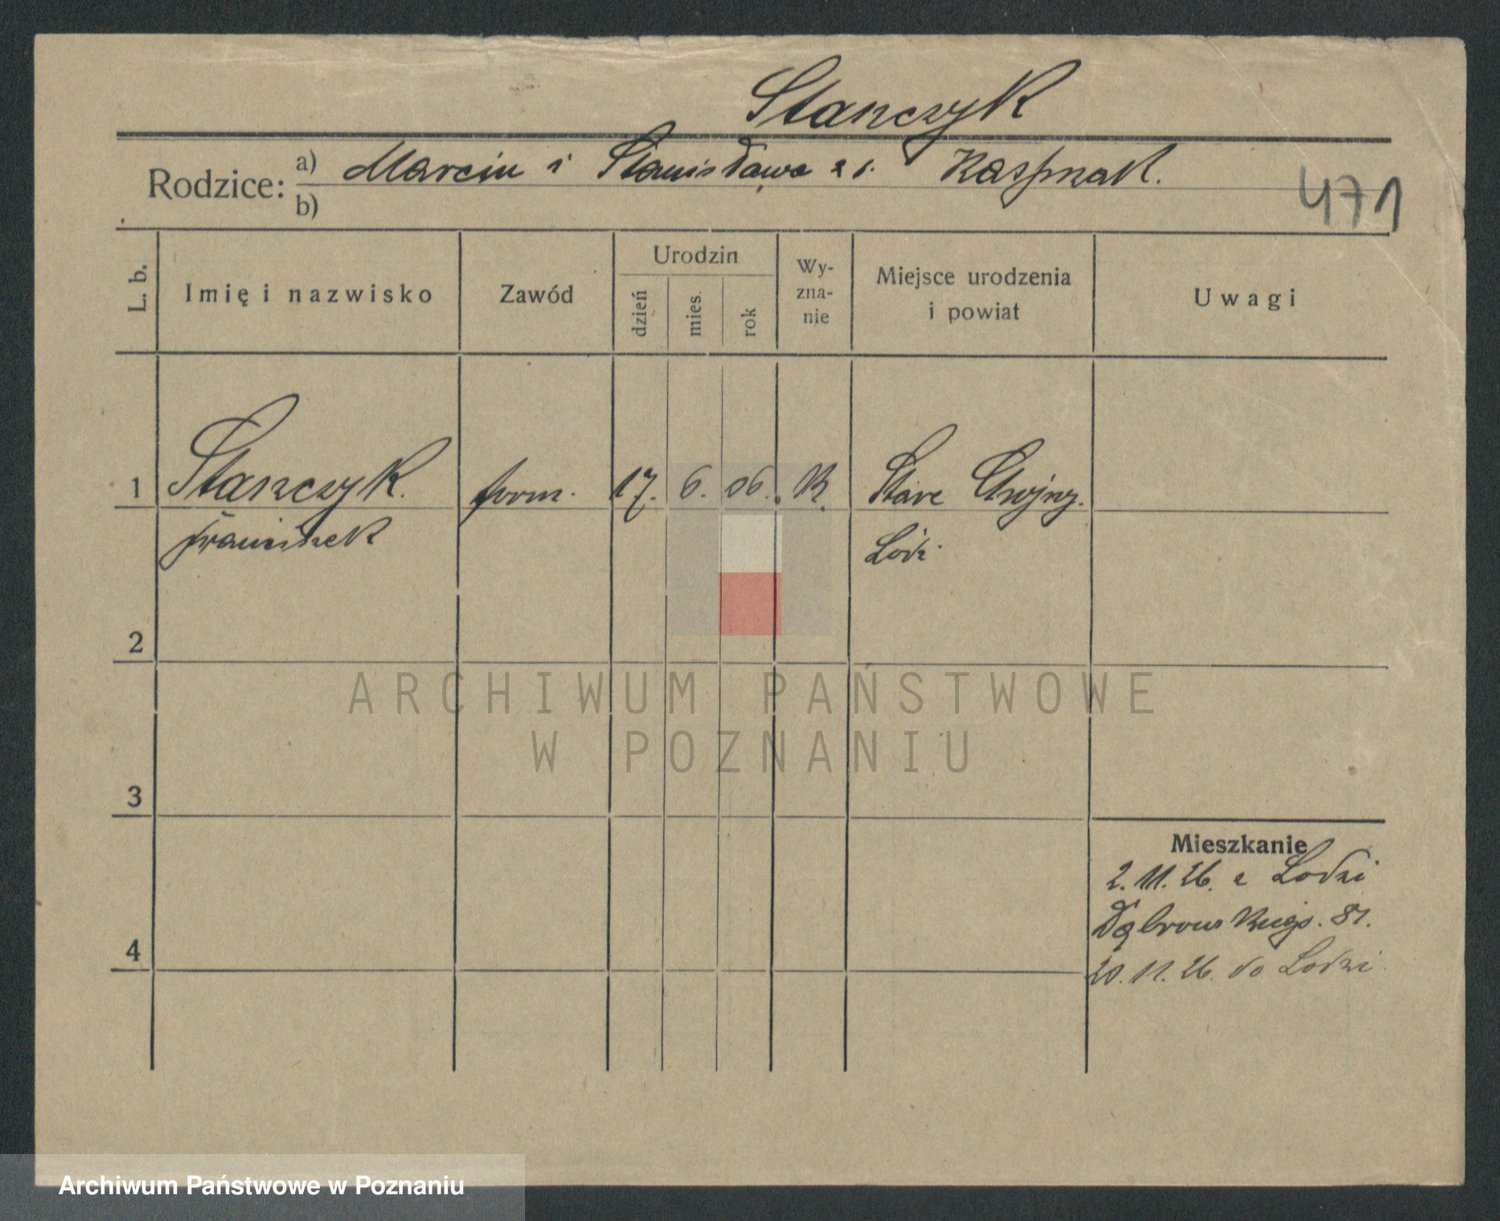 Stańczyk
Rodzice: a) Marcin i Stanisława z d. Kasprzak.
b)
471
L. b. Imię i nazwisko Zawód Urodzin dzień mies. rok Wyznanie Miejsce urodzenia i powiat Uwagi
1 Stańczyk form. 17. 6. 06. K. Stare
Franciszek Łódź
2
ARCHIWUM PAŃSTWOWE
W POZNANIU
3
Mieszkanie
2. 11. 26. z Łodzi
Dąbrowskiego. 81.
4
20. 11. 26. do Łodzi
Archiwum Państwowe w Poznaniu